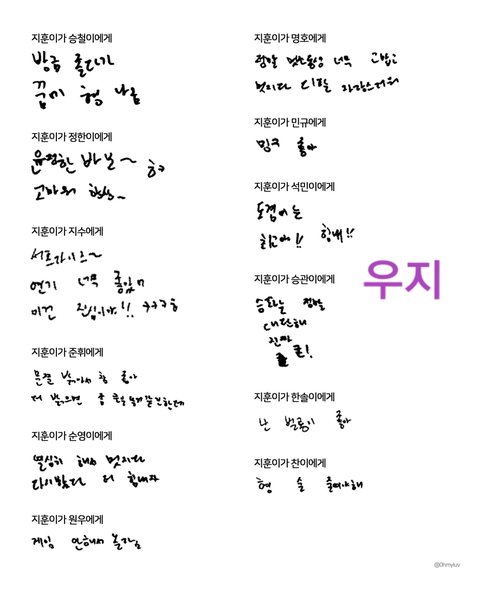 지훈이가 승철이에게
방금 졸다가
꿈에 형 나옴
지훈이가 정한이에게
윤정한 바보~
고마워 항상~
지훈이가 지수에게
서프라이즈~
연기 너무 좋았어
이건 진심이야!!
지훈이가 준휘에게
문준 밝아서 참 좋아
더 밝으면
지훈이가 순영이에게
열심히 해서 멋지다
다시봤다 더 힘내자
지훈이가 원우에게
게임 안해서
지훈이가 명호에게
정말 멋쓰동생 너무 고맙고
멋지다 디팔 자랑스러워
지훈이가 민규에게
밍구 좋아
지훈이가 석민이에게
도겸이는
최고야!! 힘내!!
지훈이가 승관이에게
승관는 정말
대단해
진짜
지훈이가 한솔이에게
난 버논이 좋아
지훈이가 찬이에게
형 술 줄여야해
우지
@0hmyluv